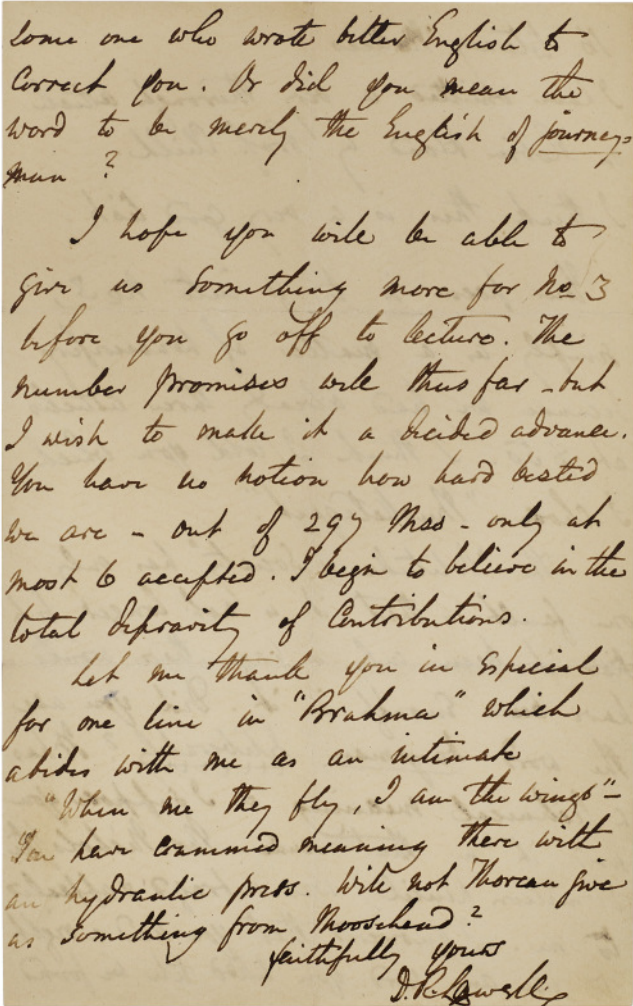 some one who wrote better English to
correct you. Or did you mean the
word to be merely the English of journey-
man?
I hope you will be able to
give us something more for No 3
before you go off to lecture. The
number promises well thus far – but
I wish to make it a decided advance.
You have no notion how hard bested
we are – out of 297 Mss – only at
most 6 accepted. I begin to believe in the
total depravity of Contributions.
Let me thank you in especial
for one line in "Brahma" which
abides with me as an intimate
"When me they fly, I am the wings" –
You have crammed meaning there with
an hydraulic press. Will not Thoreau give
us something from Moosehead?
faithfully yours
J. R. Lowell.